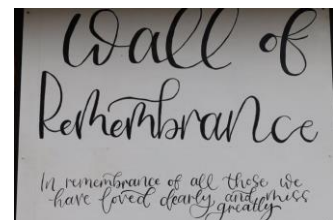 Wall of
Remembrance
In remembrance of all those we
have loved dearly and miss
greatly